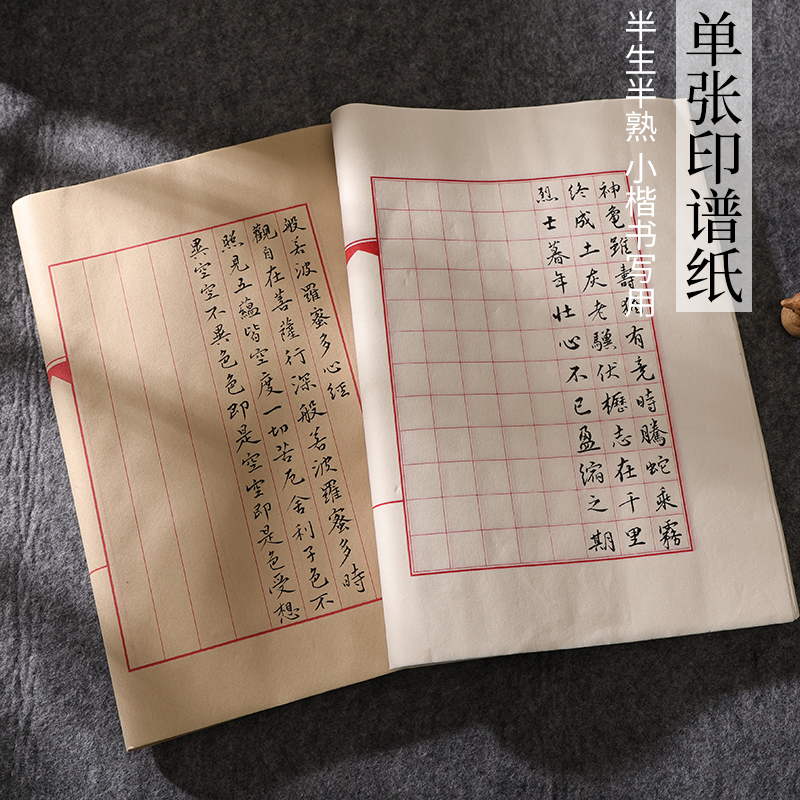 单张印谱纸
半生半熟 小楷书写用
神龜雖壽猶有竟時騰蛇乘霧
終成土灰老驥伏櫪志在千里
烈士暮年壯心不已盈縮之期
般若波羅蜜多心經
觀自在菩薩行深般若波羅蜜多時
照見五蘊皆空度一切苦厄舍利子色不
異空空不異色色即是空空即是色受想